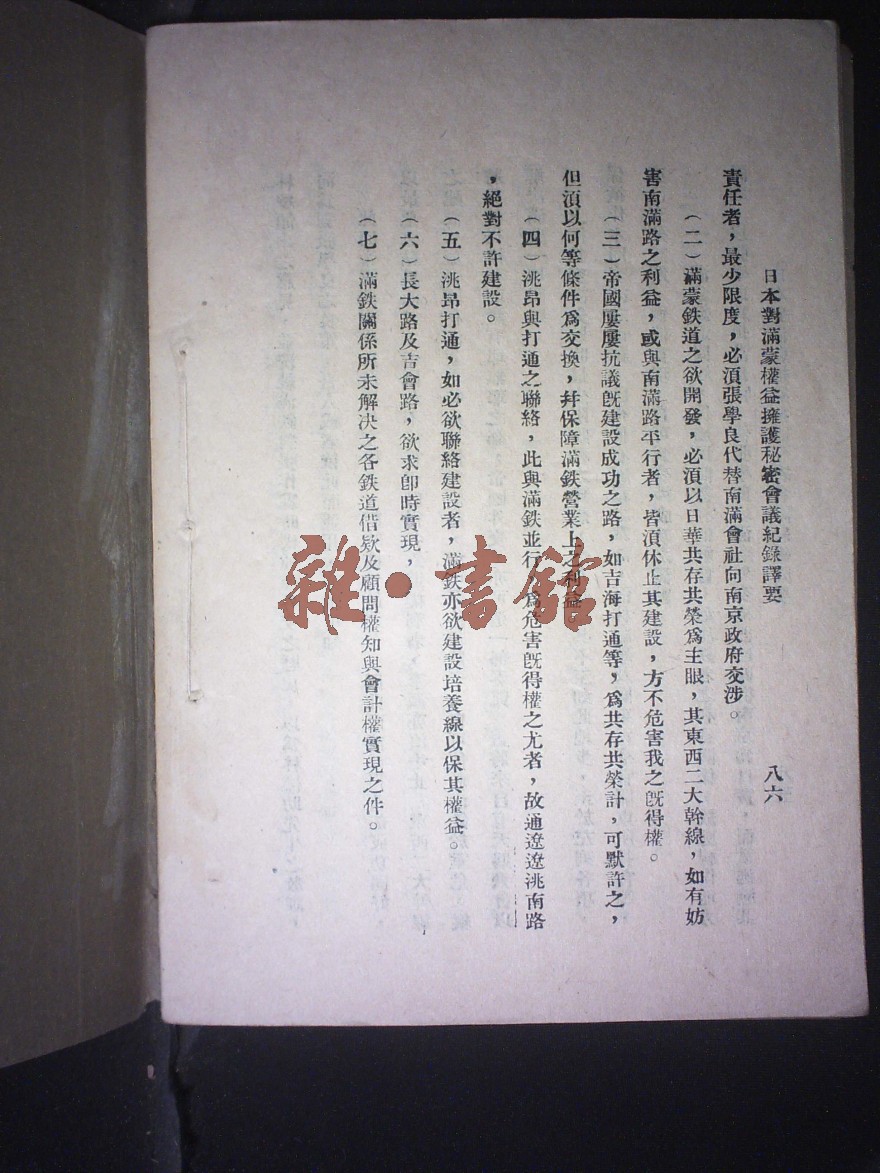 日本對滿蒙權益擁護秘密會議紀錄譯要 八六
責任者，最少限度，必須張學良代替南滿會社向南京政府交涉。
（二）滿蒙鉄道之欲開發，必須以日華共存共榮爲主眼，其東西二大幹線，如有妨
害南滿路之利益，或與南滿路平行者，皆須休止其建設，方不危害我之旣得權。
（三）帝國屢屢抗議旣建設成功之路，如吉海打通等，爲共存共榮計，可默許之，
但須以何等條件爲交換，幷保障滿鉄營業上之利益
（四）洮昂與打通之聯絡，此與滿鉄並行，爲危害旣得權之尤者，故通遼遼洮南路
，絕對不許建設。
（五）洮昂打通，如必欲聯絡建設者，滿鉄亦欲建設培養線以保其權益。
（六）長大路及吉會路，欲求卽時實現，
（七）滿鉄關係所未解决之各鉄道借欵及顧問權知與會計權實現之件。
雜·書館